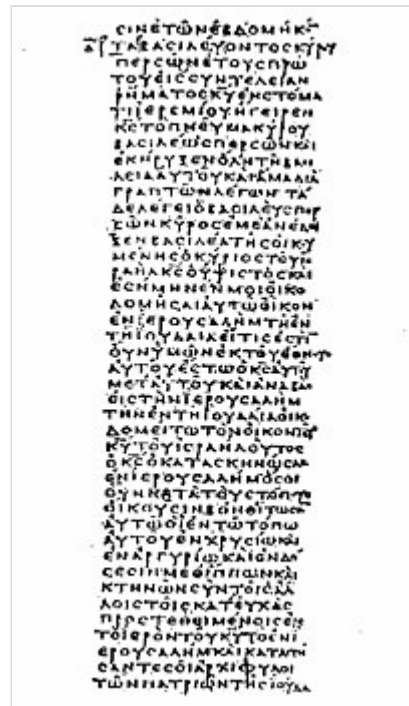 CΙΝΕΤΩΝΕΒΔΟΜΗΚΟ
ΤΑΒΑCΙΛΕΥΟΝΤΟCΚΥΡΟΥ
ΠΕΡCΩΝΕΤΟΥCΠΡΩ
ΤΟΥΕΙCCΥΝΤΕΛΕΙΑΝ
ΡΗΜΑΤΟCΚΥΕΝCΤΟΜΑ
ΤΙΙΕΡΕΜΙΟΥΗΓΕΙΡΕΝ
ΚCΤΟΠΝΕΥΜΑΚΥΡΟΥ
ΒΑCΙΛΕΩCΠΕΡCΩΝΚΑΙ
ΕΚΗΡΥΞΕΝΟΛΗΤΗΒΑCΙ
ΛΕΙΑΑΥΤΟΥΚΑΙΑΜΑΔΙΑ
ΓΡΑΠΤΩΝΛΕΓΩΝΤΑ
ΔΕΛΕΓΕΙΟΒΑCΙΛΕΥCΠΕΡ
CΩΝΚΥΡΟCΕΜΕΑΝΕΔΕΙ
ΞΕΝΒΑCΙΛΕΑΤΗCΟΙΚΟΥ
ΜΕΝΗCΟΚΥΡΙΟCΤΟΥΙC
ΡΑΗΛΚCΟΥΨΙCΤΟCΚΑΙ
ΕCΗΜΗΝΕΝΜΟΙΟΙΚΟ
ΔΟΜΗCΑΙΑΥΤΩΟΙΚΟΝ
ΕΝΙΕΡΟΥCΑΛΗΜΤΗΕΝ
ΤΗΙΟΥΔΑΙΑΕΙΤΙCΕCΤΙ
ΟΥΝΥΜΩΝΕΚΤΟΥΕΘΝΟΥC
ΑΥΤΟΥΕCΤΩΟΚCΑΥΤΟΥ
ΜΕΤΑΥΤΟΥΚΑΙΑΝΑΒΑC
ΕΙCΤΗΝΙΕΡΟΥCΑΛΗΜ
ΤΗΝΕΝΤΗΙΟΥΔΑΙΑΟΙΚΟ
ΔΟΜΕΙΤΩΤΟΝΟΙΚΟΝΤΟΥ
ΚΥΤΟΥΙCΡΑΗΛΟΥΤΟC
ΟΚCΟΚΑΤΑCΚΗΝΩCΑC
ΕΝΙΕΡΟΥCΑΛΗΜΟCΟΙ
ΟΥΝΚΑΤΑΤΟΥCΤΟΠΟΥC
ΟΙΚΟΥCΙΝΒΟΗΘΕΙΤΩCΑ
ΑΥΤΩΟΙΕΝΤΩΤΟΠΩ
ΑΥΤΟΥΕΝΧΡΥCΙΩΚΑΙ
ΕΝΑΡΓΥΡΙΩΚΑΙΕΝΔΟ
CΕCΙΝΜΕΘΙΠΠΩΝΚΑΙ
ΚΤΗΝΩΝCΥΝΤΟΙCΑΛ
ΛΟΙCΤΟΙCΚΑΤΕΥΧΑC
ΠΡΟCΤΕΘΕΙΜΕΝΟΙCΕΙC
ΤΟΙΕΡΟΝΤΟΥΚΥΤΟΕΝΙ
ΕΡΟΥCΑΛΗΜΚΑΙΚΑΤΑCΤΗ
CΑΝΤΕCΟΙΑΡΧΙΦΥΛΟΙ
ΤΩΝΠΑΤΡΙΩΝΤΗCΙΟΥΔΑ